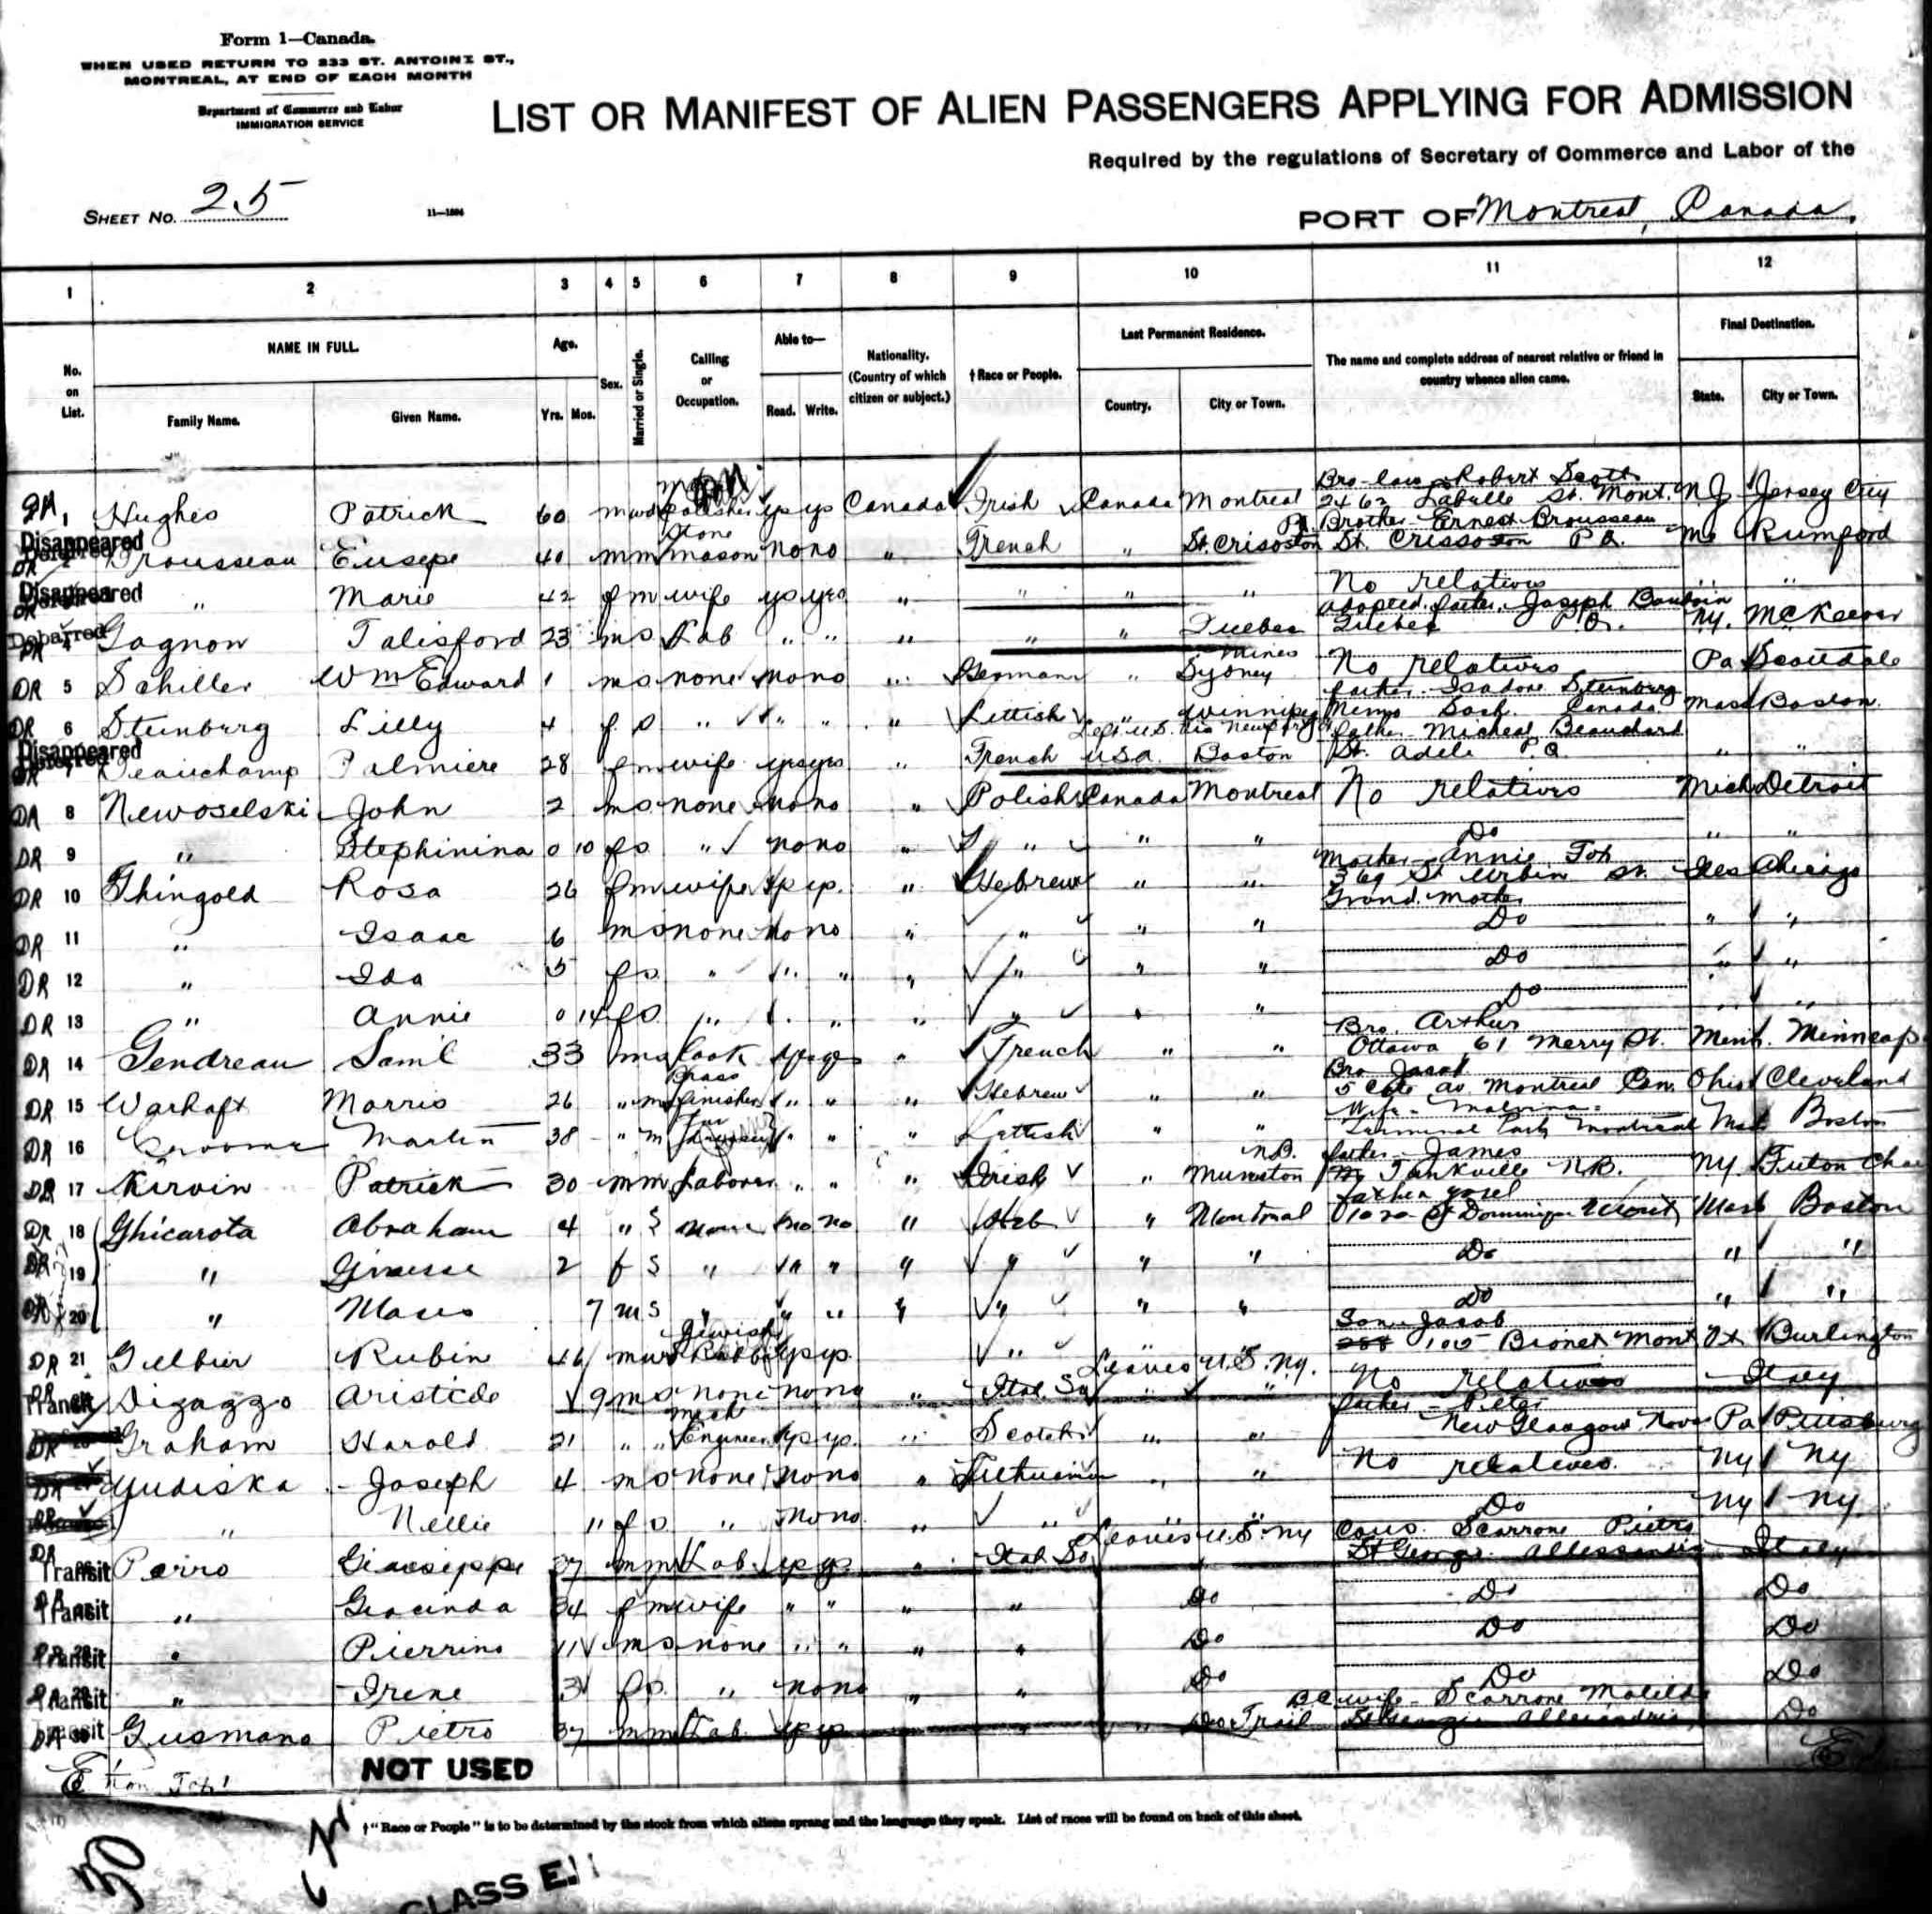 Form 1—Canada.
WHEN USED RETURN TO 333 ST. ANTOINE ST.,
MONTREAL, AT END OF EACH MONTH
Department of Commerce and Labor
IMMIGRATION SERVICE
LIST OR MANIFEST OF ALIEN PASSENGERS APPLYING FOR ADMISSION
Required by the regulations of Secretary of Commerce and Labor of the
SHEET NO. 25
PORT OF Montreal, Canada.
1 2 3 4 5 6 7 8 9 10 11 12
No. on List.
NAME IN FULL.
Family Name. Given Name.
Age.
Yrs. Mos.
Sex.
Married or Single.
Calling or Occupation.
Able to—
Read. Write.
Nationality. (Country of which citizen or subject.)
†Race or People.
Last Permanent Residence.
Country. City or Town.
The name and complete address of nearest relative or friend in country whence alien came.
Final Destination.
State. City or Town.
Bro-law Robert Scott
1 Hughes Patrick 60 m wd polisher yes yes Canada Irish Canada Montreal 2462 Labelle St. Mont. N.J. Jersey City
Disappeared Stone Brother Ernest Brousseau
Brousseau Eusepe 40 m m mason no no " French " St. Crisoston St. Crissoston P.Q. Me Rumford
Disappeared
" Marie 42 f m wife yes yes " " " " No relatives " "
adopted father Joseph Baudoin
Debarred 4 Gagnon Talisford 23 m s Lab " " " " " Quebec Quebec P.Q. N.Y. McKeever
Mines
DR 5 Schiller Wm Edward 1 m s none no no " German " Sydney No relatives Pa Scottdale
father Isadore Steinburg
DR 6 Steinburg Lilly 4 f s " " " " Lettish " Winnipeg Sask. Canada Mass Boston
Disappeared father Micheal Beauchard
DR 7 Beauchamp Palmiere 28 f m wife yes yes " French USA Boston St. Adele P.Q. " "
DR 8 Newoselski John 2 m s none no no " Polish Canada Montreal No relatives Mich Detroit
DR 9 " Stephinina 0 10 f s " no no " " " " Do " "
Mother Annie
DR 10 Thingold Rosa 26 f m wife " Hebrew " " 369 St Urbin St. Chicago
Grand mother
DR 11 " Isaac 6 m s none no no " " " " Do " "
DR 12 " Ida 5 f s " " " " " " " Do " "
DR 13 " Annie 0 14 f s " " " " " " Do " "
Bro. Arthur
DR 14 Gendreau Saml 33 m Cook " French " " Ottawa 61 Merry St. Minn. Minneap
Brass Bro Jacob
DR 15 Warhaft Morris 26 " m finisher " " " Hebrew " " Montreal Can. Ohio Cleveland
Wife
DR 16 Martin 38 " m " " " Lettish " " Montreal Mass Boston
N.B. father James
DR 17 Kirvin Patrick 30 m m Laborer " " " Irish " Munston Tankville N.B. N.Y. Fulton
father
DR 18 Ghicarota Abraham 4 " S none no no " Heb " Montreal 1020 St Dominique Mont Mass Boston
DR 19 " 2 f s " " " " " " " Do " "
20 " Moses 7 m s " " " " " " " Do " "
Jewish Son Jacob
DR 21 Rubin 46 m wd Rabbi " " " " Mont Vt Burlington
Leaves U.S. N.Y.
Transit Digazzo Aristide 9 m s none no no " Ital. So " " No relatives Italy
Mech father Peter
DR 23 Graham Harold 21 " " Engineer " Scotch " " New Glasgow Nova Pa Pittsburg
Yudiska Joseph 4 m s none no no " Lithuanian " " No relatives. NY NY
" Nellie 11 f s " no no " " " Do NY NY
Leaves U.S. NY Cous. Scarrone Pietro
Transit Perro Giuseppe 37 m m Lab " Ital. So St George Allessandria Italy
Transit " Giacinda 34 f m wife " " " " Do Do Do
Transit " Pierrino 11 m s none " " " " Do Do Do
Transit " Irene 3 f s " no no " " Do Do Do
B.C. wife - Scarrone Matilda
Gusmano Pietro 37 m m Lab " Do Trail Do
NOT USED
†"Race or People" is to be determined by the stock from which aliens sprang and the language they speak. List of races will be found on back of this sheet.
30
CLASS E